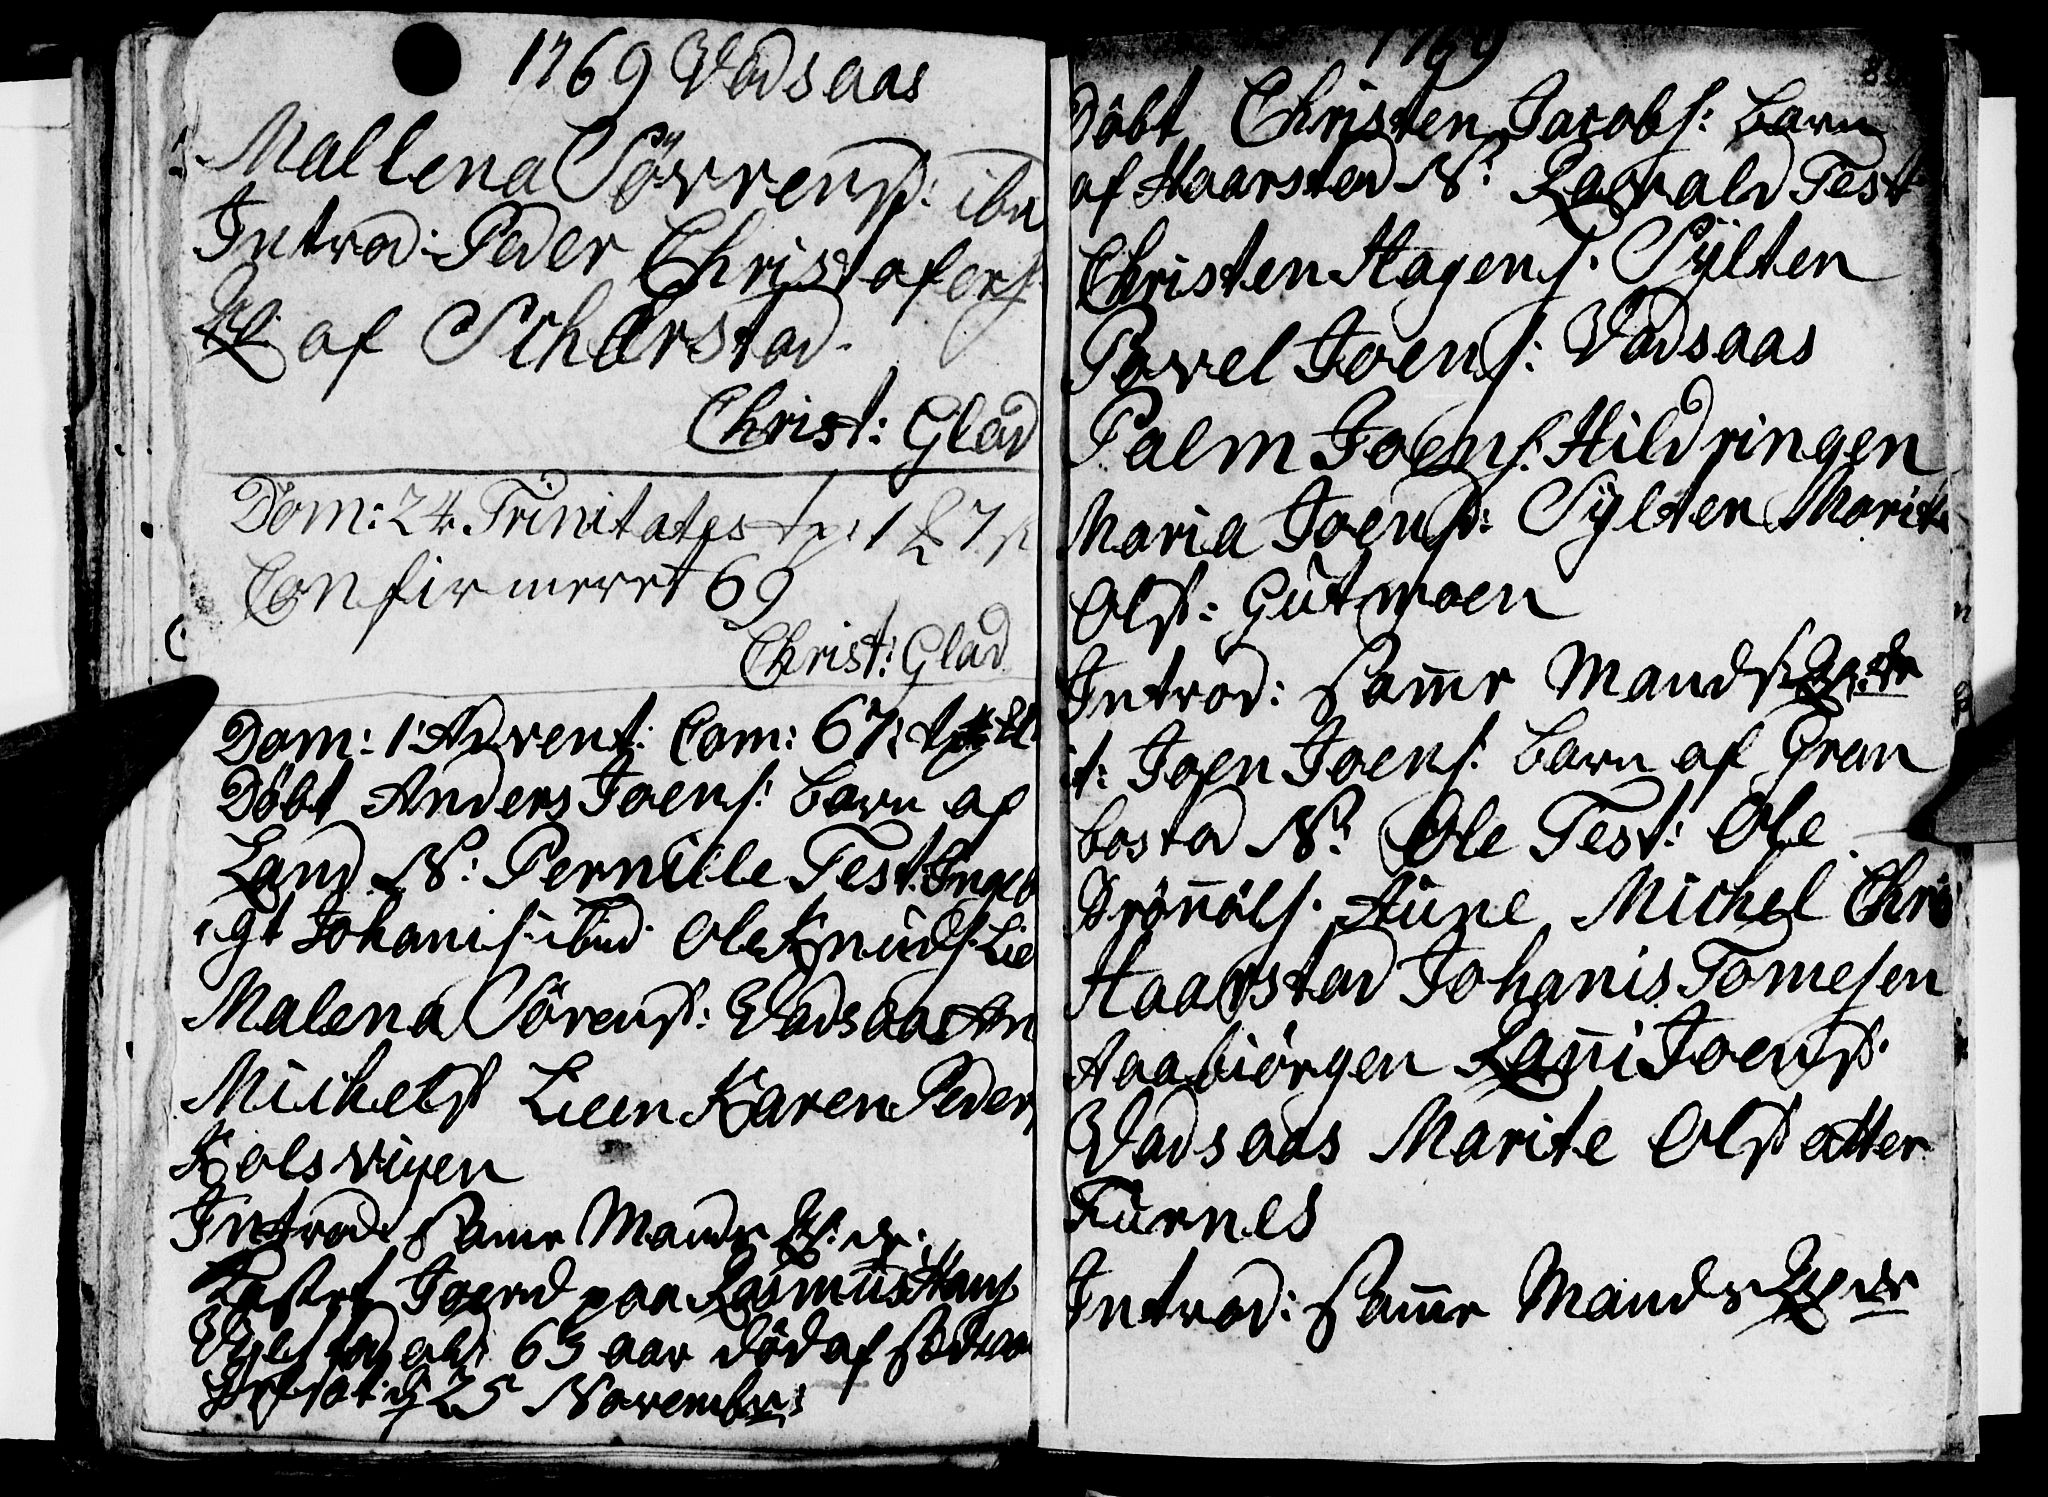 1769 Vadsaas
Mallena Sörrensd: ibn
Introd: Peder Christofers
af Scharstad.
Christ: Glad
Dom: 24 Trinitates
Confirmeret 69
Christ: Glad
Dom: 1 Advent: Com: 67
Döbt Anders Joens: barn af
Land N: Pernille Test: Ingeb
rgt Johanis: ibid. Ole Knuds: Lie
Malena Sörensd: Vadsaas An
Michelsd Lien Karen Peders
Kolsvigen
Introd: samme Mands
Kastet Joerd paa Rasmus Hans
ald: 63 aar död af
25 November
1769
Döbt Christen Jacobs: barn
af Haarstad N: Raarald Test
Christen Hagens. Sÿlten
Pavel Joens: Vadsaas
Palm Joens: Hildringen
Maria Joensd: Sÿlten Marite
Olsd: Gutmoen
Introd: samme Mands
it: Joen Joens: barn af Gran
bostad N: Ole Test: Ole
Brönnöls. Aune Michel Chris
Haarstad Johanis Tomesen
Aaabiörgen Lanni Joensd.
Vadsaas Marite Olsdatter
Furnes
Introd: samme Mands